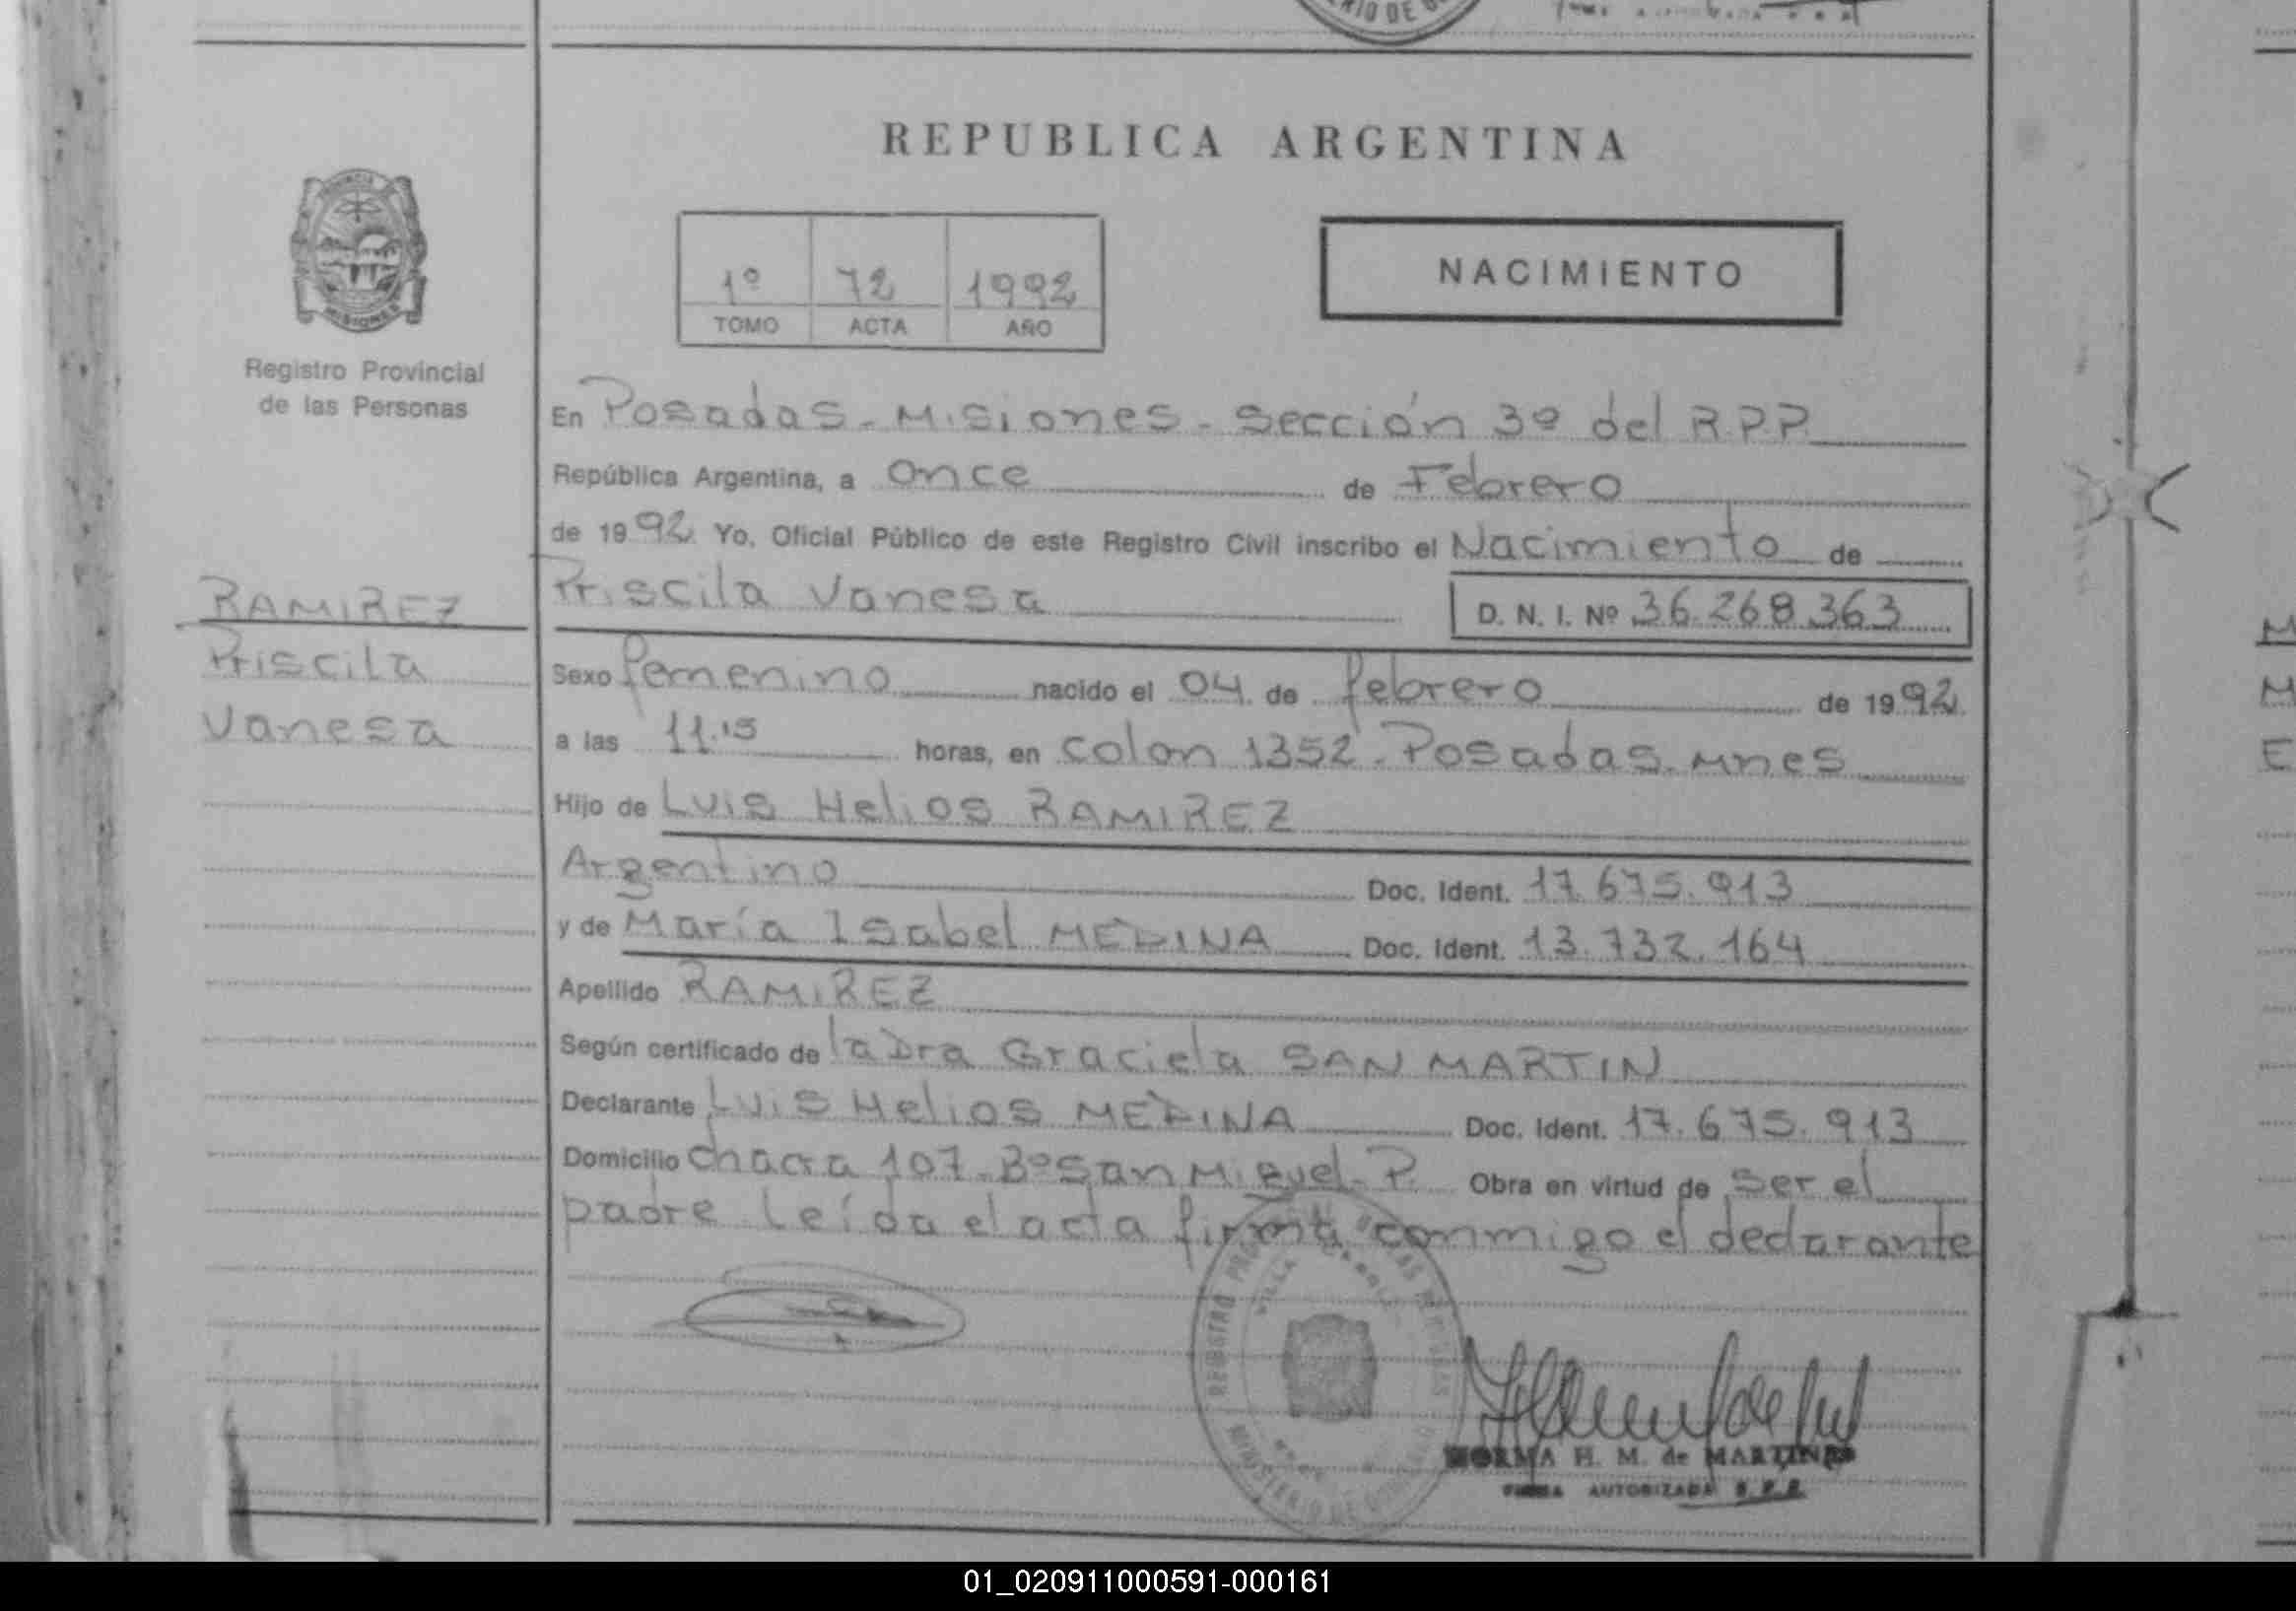 REPUBLICA ARGENTINA
PROVINCIA
MISIONES
Registro Provincial
de las Personas
1º 72 1992
TOMO ACTA AÑO
NACIMIENTO
En Posadas - Misiones - Sección 3º del R.P.P.
República Argentina, a Once de Febrero
de 1992 Yo, Oficial Público de este Registro Civil inscribo el Nacimiento de
Priscila Vanesa D. N. I. Nº 36.268.363
RAMIREZ
Priscila
Vanesa
Sexo femenino nacido el 04 de febrero de 1992
a las 11.15 horas, en colon 1352 - Posadas - Mnes
Hijo de Luis Helios RAMIREZ
Argentino Doc. Ident. 17.675.913
y de María Isabel MEDINA Doc. Ident. 13.732.164
Apellido RAMIREZ
Según certificado de la Dra Graciela SAN MARTIN
Declarante Luis Helios MEDINA Doc. Ident. 17.675.913
Domicilio Chacra 107 - Bº San Miguel - P. Obra en virtud de ser el
padre Leída el acta firma conmigo el declarante
NORMA H. M. de MARTINEZ
FIRMA AUTORIZADA R.P.P.
01_020911000591-000161